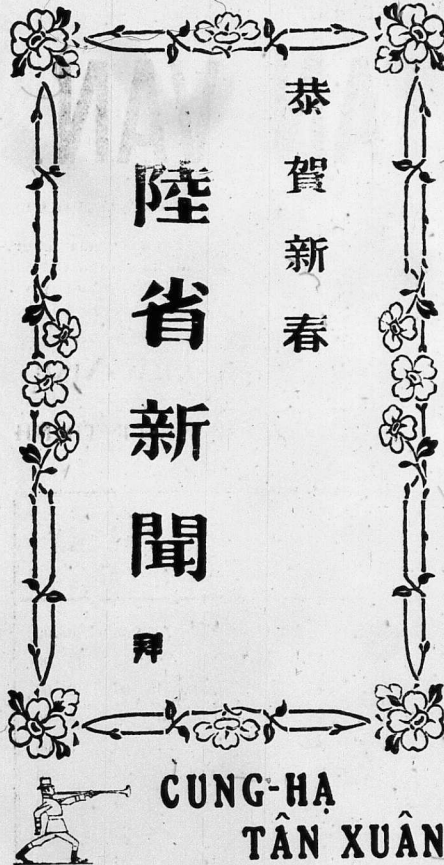 恭賀新春
陸省新聞 拜
CUNG-HẠ
TÂN XUÂN